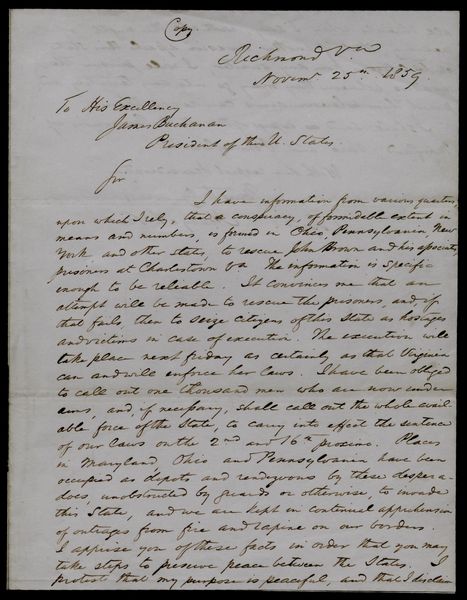 Copy
Richmond Va
Novemr 25th 1859.
To His Excellency
James Buchanan
President of the U. States.
Sir
I have information from various quarters,
upon which I rely, that a conspiracy, of formidable extent in
means and numbers, is formed in Ohio, Pennsylvania, New
York and other States, to rescue John Brown and his associate
prisoners at Charlestown Va. The information is specific
enough to be reliable. It convinces me that an
attempt will be made to rescue the prisoners, and, if
that fails, then to seize citizens of this State as hostages
and victims in case of execution. The execution will
take place next friday as certainly as that Virginia
can and will enforce her laws. I have been obliged
to call out one thousand men who are now under
arms, and, if necessary, shall call out the whole avail-
able force of the State, to carry into effect the sentence
of our laws on the 2nd and 16th proximo. Places
in Maryland, Ohio and Pennsylvania have been
occupied as depots and rendezvous by these despera-
does, unobstructed by guards or otherwise, to invade
this State, and we are kept in continual apprehension
of outrages from fire and rapine on our borders.
I apprise you of these facts in order that you may
take steps to preserve peace between the States. I
protest that my purpose is peaceful, and that I disclaim